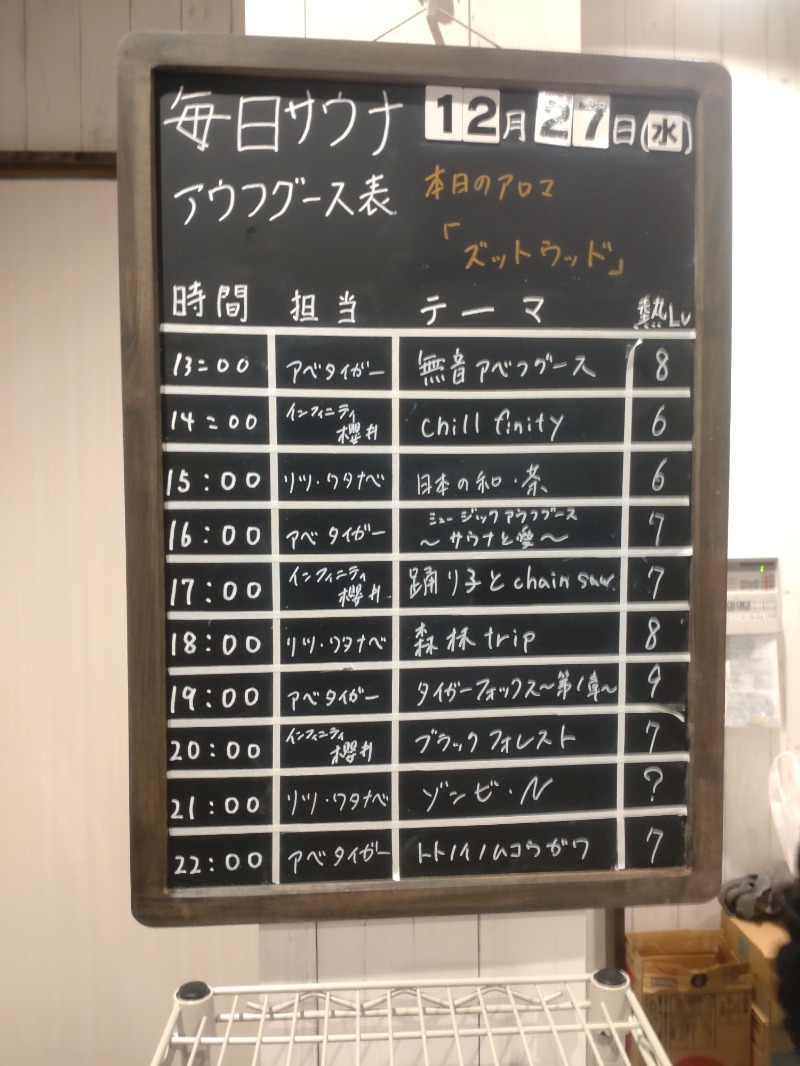 毎日サウナ 12月27日(水)
アウフグース表 本日のアロマ
「ズットウッド」
時間 担当 テーマ 熱Lv
13:00 アベタイガー 無音アベフグース 8
14:00 インフィニティ櫻井 chill finity 6
15:00 リツ・ワタナベ 日本の和・茶 6
16:00 アベタイガー ミュージックアウフグース 〜サウナと愛〜 7
17:00 インフィニティ櫻井 踊り子とchain saw 7
18:00 リツ・ワタナベ 森林trip 8
19:00 アベタイガー タイガーフォックス〜第1章〜 9
20:00 インフィニティ櫻井 ブラックフォレスト 7
21:00 リツ・ワタナベ ゾンビ・N ?
22:00 アベタイガー トトノイノムコウガワ 7